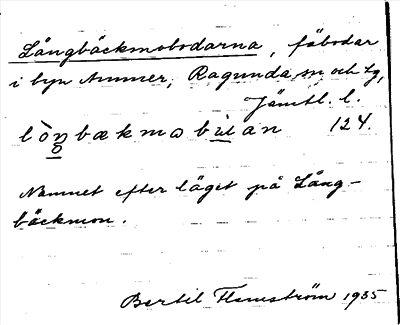 Långbäckmobodarna, fäbodar
i byn Ammer, Ragunda sn och tg,
Jämtl. l.
124.
Namnet efter läget på Lång-
bäckmon.
Bertil Flemström 1935